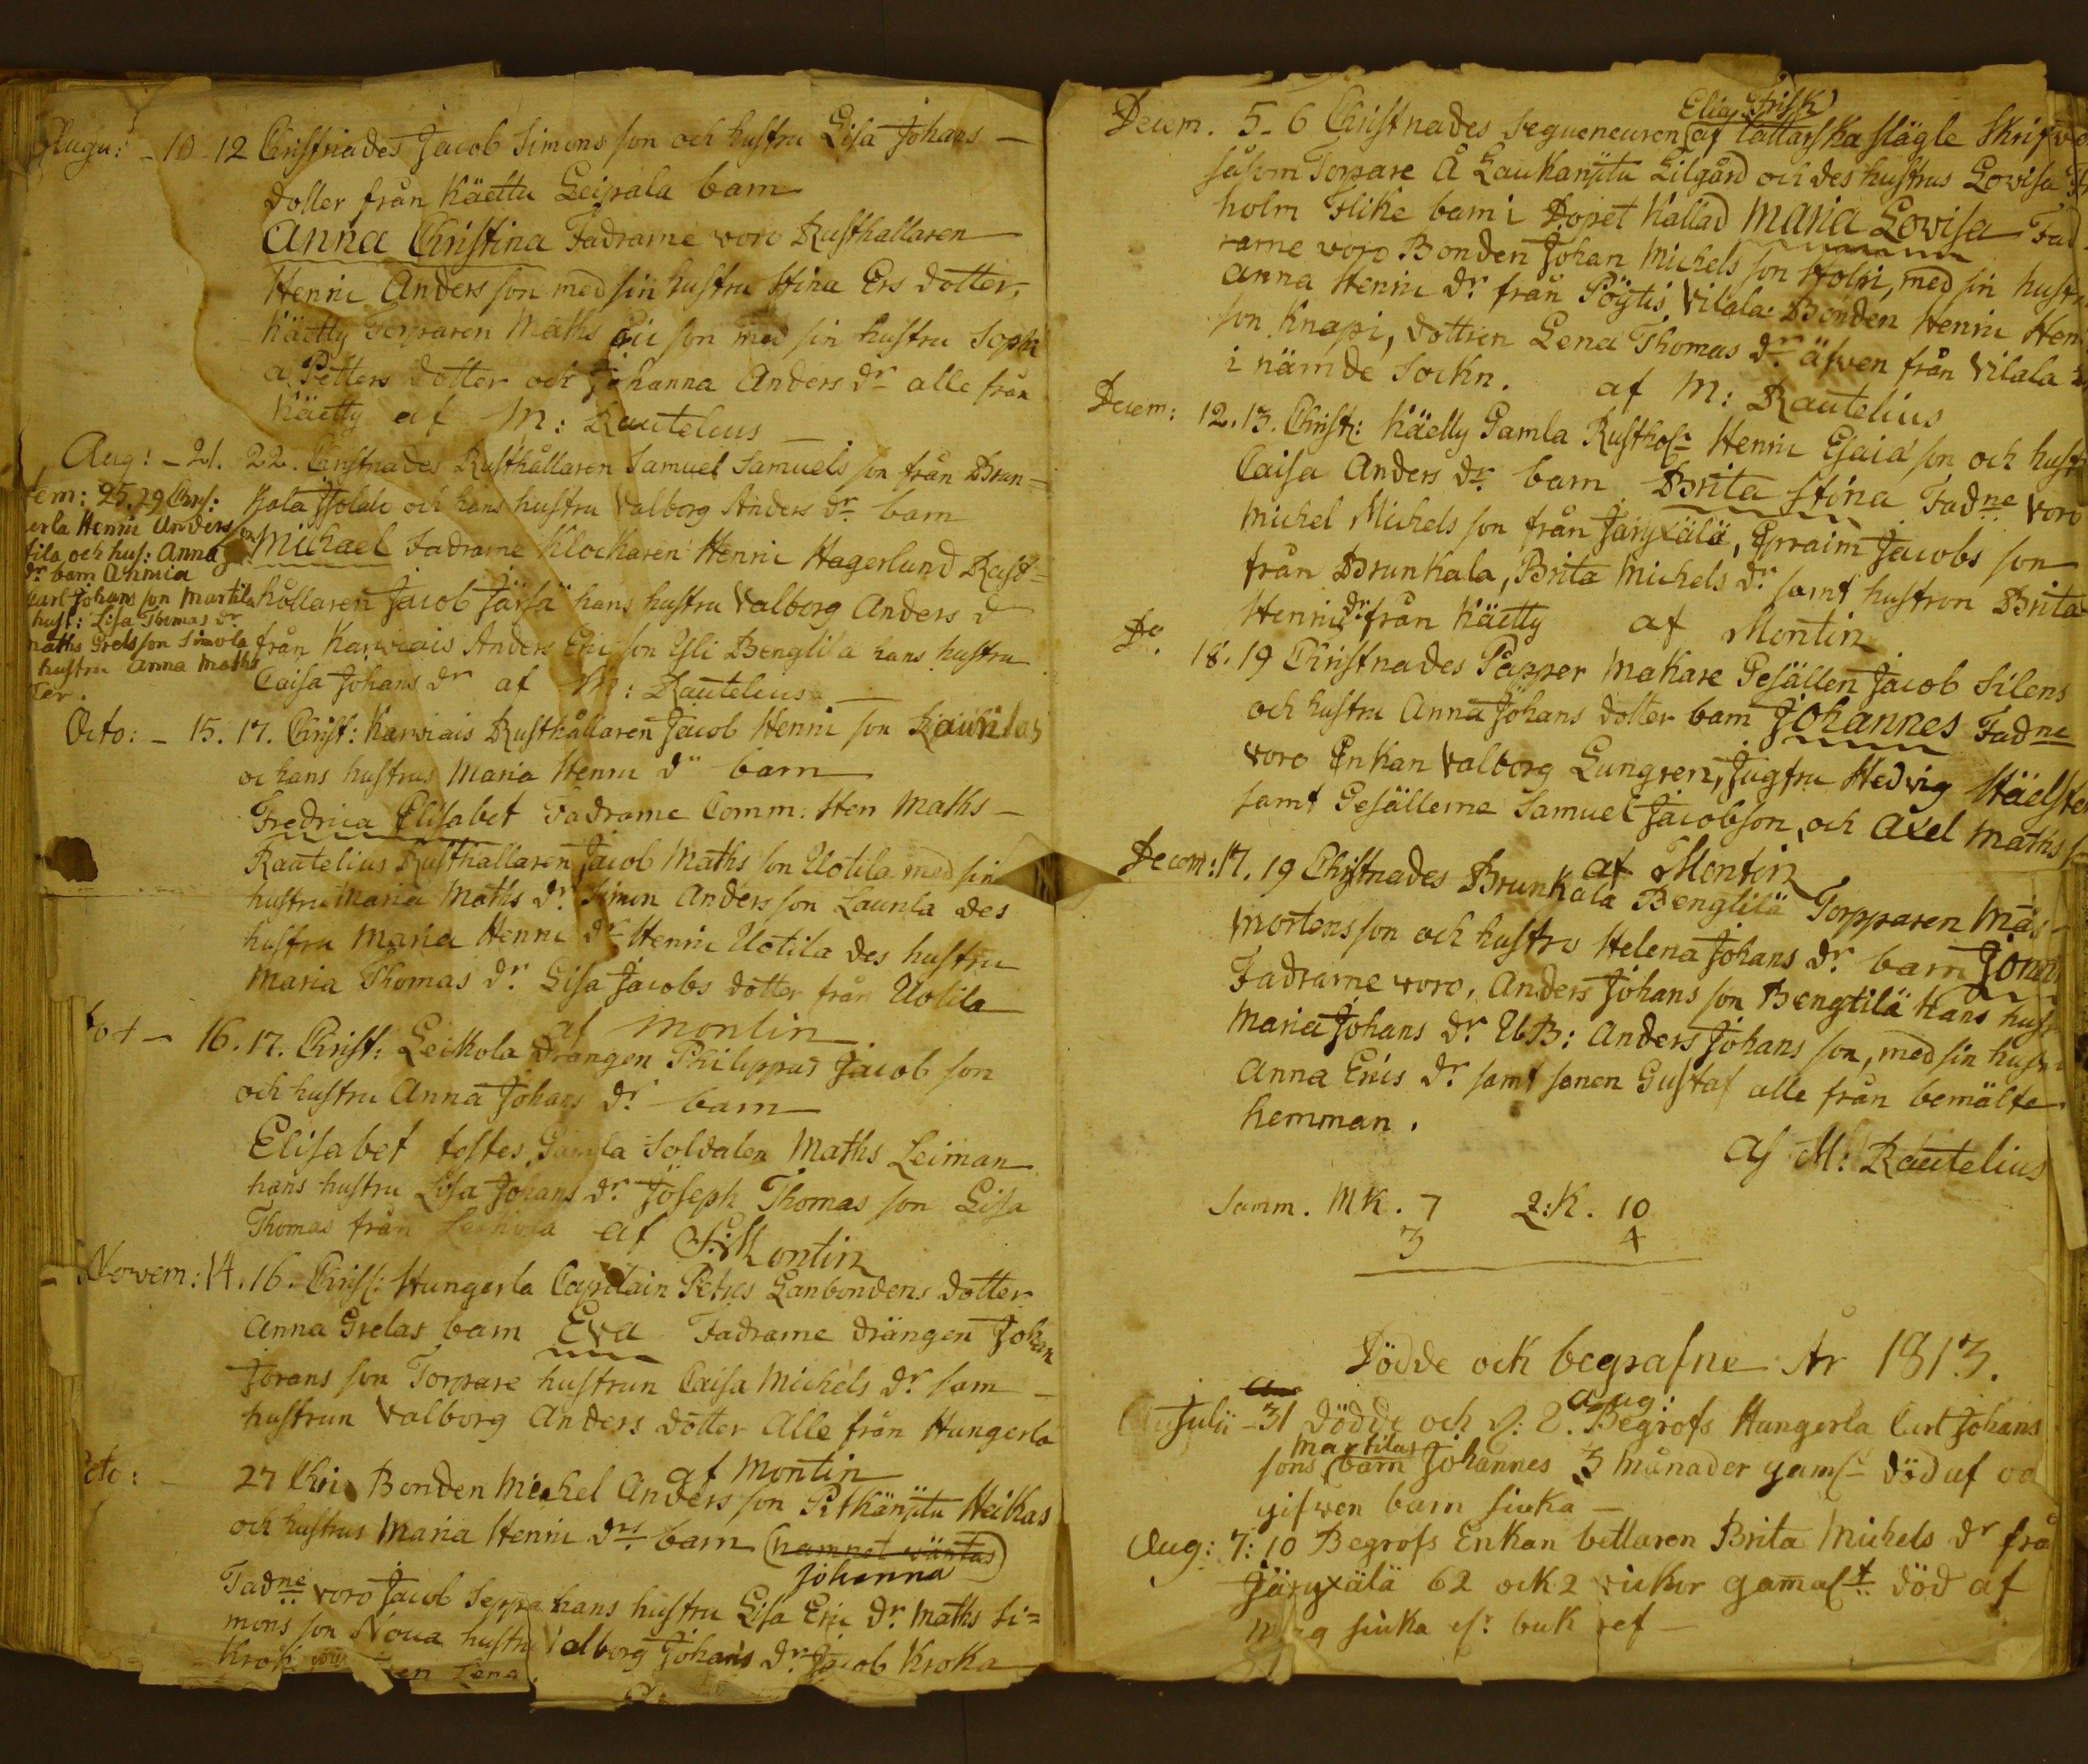 Augu: - 10 - 12 Christnades Jacob Simons son och hustru Lisa Johans -
dotter från Käettu Leipala barn
Anna Christina Fadrarne voro Rusthallaren
Henric Anders son med sin hustru Stina Ers dotter,
Käetty Torparen Maths Eric son med sin hustru Soph
a Petters dotter och Johanna Anders dr alle från
Käetty af M: Rautelius
Aug: - 21. 22. Christnades Rusthållaren Samuel Samuels son från Brun=
kala Isolalu och hans hustru Valborg Anders dr barn
Michael Fadrarne Klockaren Henric Hagerlund Rust=
hållaren Jacob Järsä hans hustru Valborg Anders d
från Karviais Anders Eric son Yli Benglilä hans hustru
Caisa Johans dr af M: Rautelius
tem: 25. 29 Chris:
erla Henric Anders son
tila och hus: Anna
dr barn Annica
Carl Johans son Martila
hust: Lisa Thomas dr
maths Grels son Simola
hustru Anna Maths
ter.
Octo: - 15. 17. Christ: Karviais Rusthållaren Jacob Henric son Launilas
oc hans hustrus Maria Henric dr barn
Fredrica Elisabet Fadrarne Comm: Hen Maths -
Rautelius Rusthallaren Jacob Maths son Uotila med sin
hustru Maria Maths dr. Simon Anders son Launla des
hustru Maria Henric dr Henric Uotila des hustru
Maria Thomas dr. Lisa Jacobs dotter från Uotila
af Montin
16. 17. Christ: Leikola Drängen Philippus Jacob son
och hustru Anna Johans dr. barn
Elisabet testes Gamla Soldaten Maths Leiman
hans hustru Lisa Johans dr. Joseph Thomas son Lisa
Thomas från Leikola af F: Montin
Novem: 14. 16. Chris: Hungerla Capitain Petres Lanbondens dotter
Anna Gretas barn Eva Fadrarne drängen Johan
Jörans son Torpare hustrun Caisa Michels dr. sam -
hustrun Valborg Anders dotter Alle från Hungerla
af Montin
cto: - 27 Chri Bonden Michel Anders son Pitkänjitu Heikas
och hustrus Maria Henric drs barn (namnet väntas)
Johanna
Fadne voro Jacob Seppa hans hustru Lisa Eric dr. Maths Si=
mons son Noua hustru Valborg Johans dr. Jacob Kroka
Kroki en Lena
Decem. 5 - 6 Christnades segueneuren Elias Frisk af tattarska slägte Skrifve
såsom Torpare Å Laukanjitu Lilgård och des hustrus Lovisa
holm Flike barn i Dopet Kallad Maria Lovisa Fad
rarne voro Bonden Johan Michels son Holpi, med sin hustru
Anna Henric dr. från Pöytis Vilala. Bonden Henric Hen
son Knapi, dottren Lena Thomas dr. äfven från Vilala
i nämde Sockn. af M: Rautelius
Decem: 12. 13. Christ: Käelly Gamla Rusthol: Henric Esaia son och hustr
Caisa Anders dr. barn Brita Stina Fadne voro
Michel Michels son från Järyxälä, Epraim Jacobs son
från Brunkala, Brita Michels dr. samt hustron Brita
Henric dr från Käetty af Montin
Do. 18. 19 Christnades Papper Makare Gesällen Jacob Silens
och hustru Anna Johans dotter barn Johannes Fadne
voro Enkan Valborg Lungren, Jugfru Hedvig Häelste
samt Gesällerne Samuel Jacobson, och Axel Maths
af Montin
Decem: 17. 19 Christnades Brunkala Benglilä Torpparen Mås -
Mortens son och hustro Helena Johans dr. barn Jonn
Fadrarne voro, Anders Johans son Bengtilä hans hust
Maria Johans dr. UB: Anders Johans son, med sin hustru
Anna Erics dr. samt sonen Gustaf alle från bemälte
hemman.
Af M: Rautelius
Summ. MK. 7 Q:K. 10
3 4
Dödde och begrafne År 1813.
Julii - 31 Dödde och d: 8. Aug: Begrofs Hungerla Carl Johans
sons Martilas barn Johannes 3 månader gaml död af oa
gifven barn siuka -
Aug: 7: 10 Begrofs Enkan bettaren Brita Michels dr frå
Järyxälä 62 ock 2 vickor gamalt död af
siuka el: buk ref -